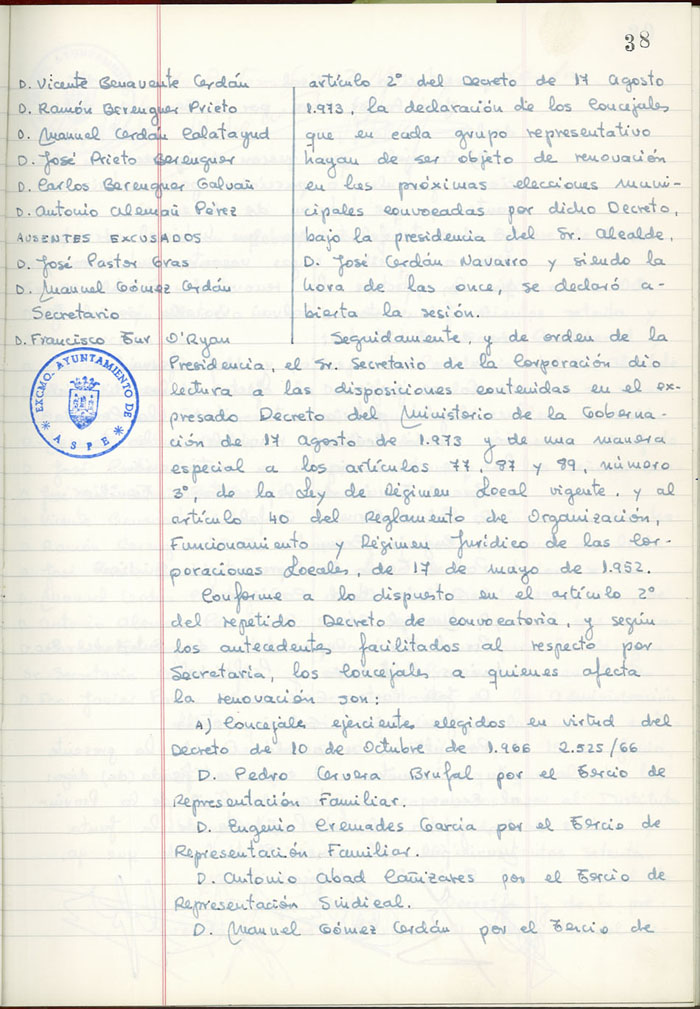 38
D. Vicente Benavente Cerdán
D. Ramón Berenguer Prieto
D. Manuel Cerdán Calatayud
D. José Prieto Berenguer
D. Carlos Berenguer Galvañ
D. Antonio Alemañ Pérez
AUSENTES EXCUSADOS
D. José Pastor Gras
D. Manuel Gómez Cerdán
Secretario
D. Francisco Tur O'Ryan
EXCMO. AYUNTAMIENTO DE
ASPE
artículo 2º del Decreto de 17 Agosto
1.973, la declaración de los Concejales
que en cada grupo representativo
hayan de ser objeto de renovación
en las próximas elecciones muni-
cipales convocadas por dicho Decreto,
bajo la presidencia del Sr. Alcalde,
D. José Cerdán Navarro y siendo la
hora de las once, se declaró a-
bierta la sesión.
Seguidamente, y de orden de la
Presidencia, el Sr. Secretario de la Corporación dio
lectura a las disposiciones contenidas en el ex-
presado Decreto del Ministerio de la Goberna-
ción de 17 Agosto de 1.973 y de una manera
especial a los artículos 77, 87 y 89, número
3º, de la Ley de Régimen Local vigente, y al
artículo 40 del Reglamento de Organización,
Funcionamiento y Régimen Jurídico de las Cor-
poraciones Locales, de 17 de mayo de 1.952.
Conforme a lo dispuesto en el artículo 2º
del repetido Decreto de convocatoria, y según
los antecedentes facilitados al respecto por
Secretaría, los Concejales a quienes afecta
la renovación son:
A) Concejales ejercientes elegidos en virtud del
Decreto de 10 de Octubre de 1.966 2.525/66
D. Pedro Cervera Brufal por el Tercio de
Representación Familiar.
D. Eugenio Cremades García por el Tercio de
Representación Familiar.
D. Antonio Abad Cañizares por el Tercio de
Representación Sindical.
D. Manuel Gómez Cerdán por el Tercio de